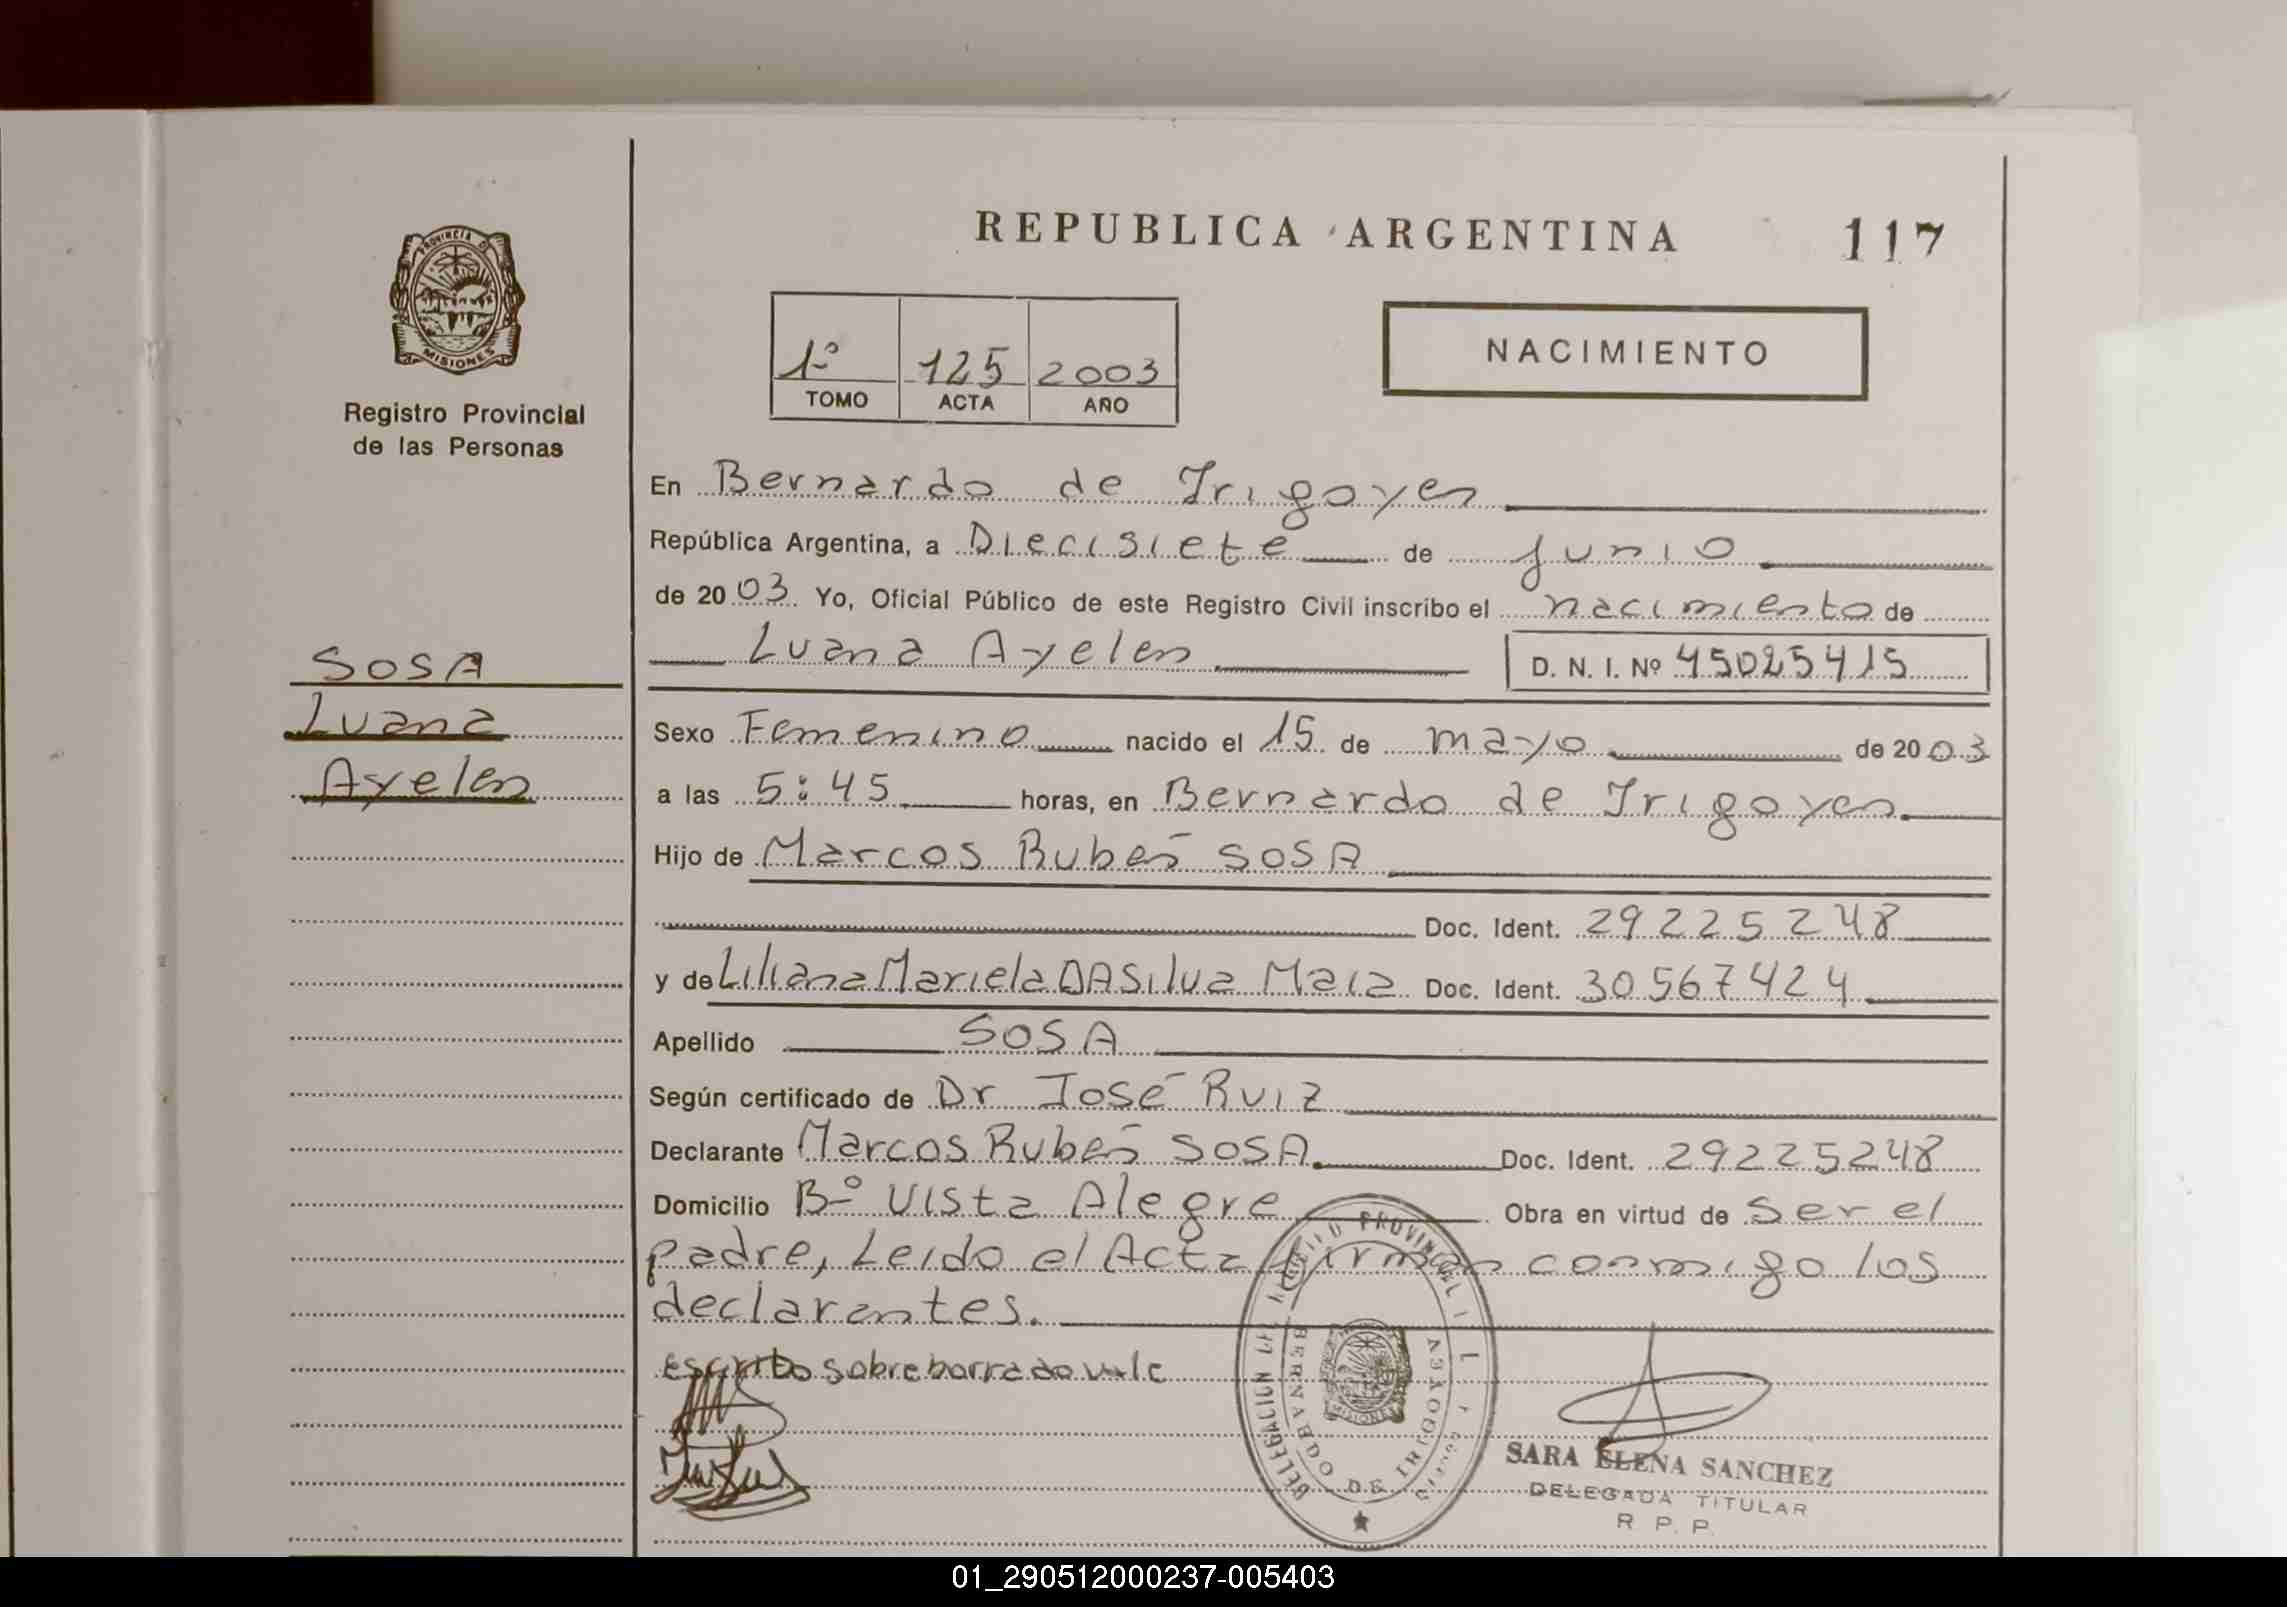 REPUBLICA ARGENTINA
117
PROVINCIA DE
MISIONES
Registro Provincial
de las Personas
1º 125 2003
TOMO ACTA AÑO
NACIMIENTO
En Bernardo de Irigoyen
República Argentina, a Diecisiete de junio
de 2003 Yo, Oficial Público de este Registro Civil inscribo el nacimiento de
Luana Ayelen D. N. I. Nº 45025415
SOSA
Luana
Ayelen
Sexo Femenino nacido el 15 de mayo de 2003
a las 5:45 horas, en Bernardo de Irigoyen
Hijo de Marcos Rubén SOSA
Doc. Ident. 29225248
y de Liliana Mariela DASilva Maia Doc. Ident. 30567424
Apellido SOSA
Según certificado de Dr José Ruiz
Declarante Marcos Rubén SOSA Doc. Ident. 29225248
Domicilio Bº Vista Alegre Obra en virtud de ser el
padre, Leido el Acta firman conmigo los
declarantes.
escrito sobre borrado vale
BERNARDO DE IRIGOYEN
MISIONES
SARA ELENA SANCHEZ
DELEGADA TITULAR
R. P. P.
01_290512000237-005403